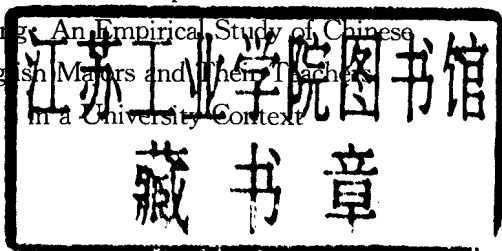 ng: An Empirical Study of Chinese
glish Majors and Their Teachers
in a University Context
江苏工业学院图书馆
藏书章